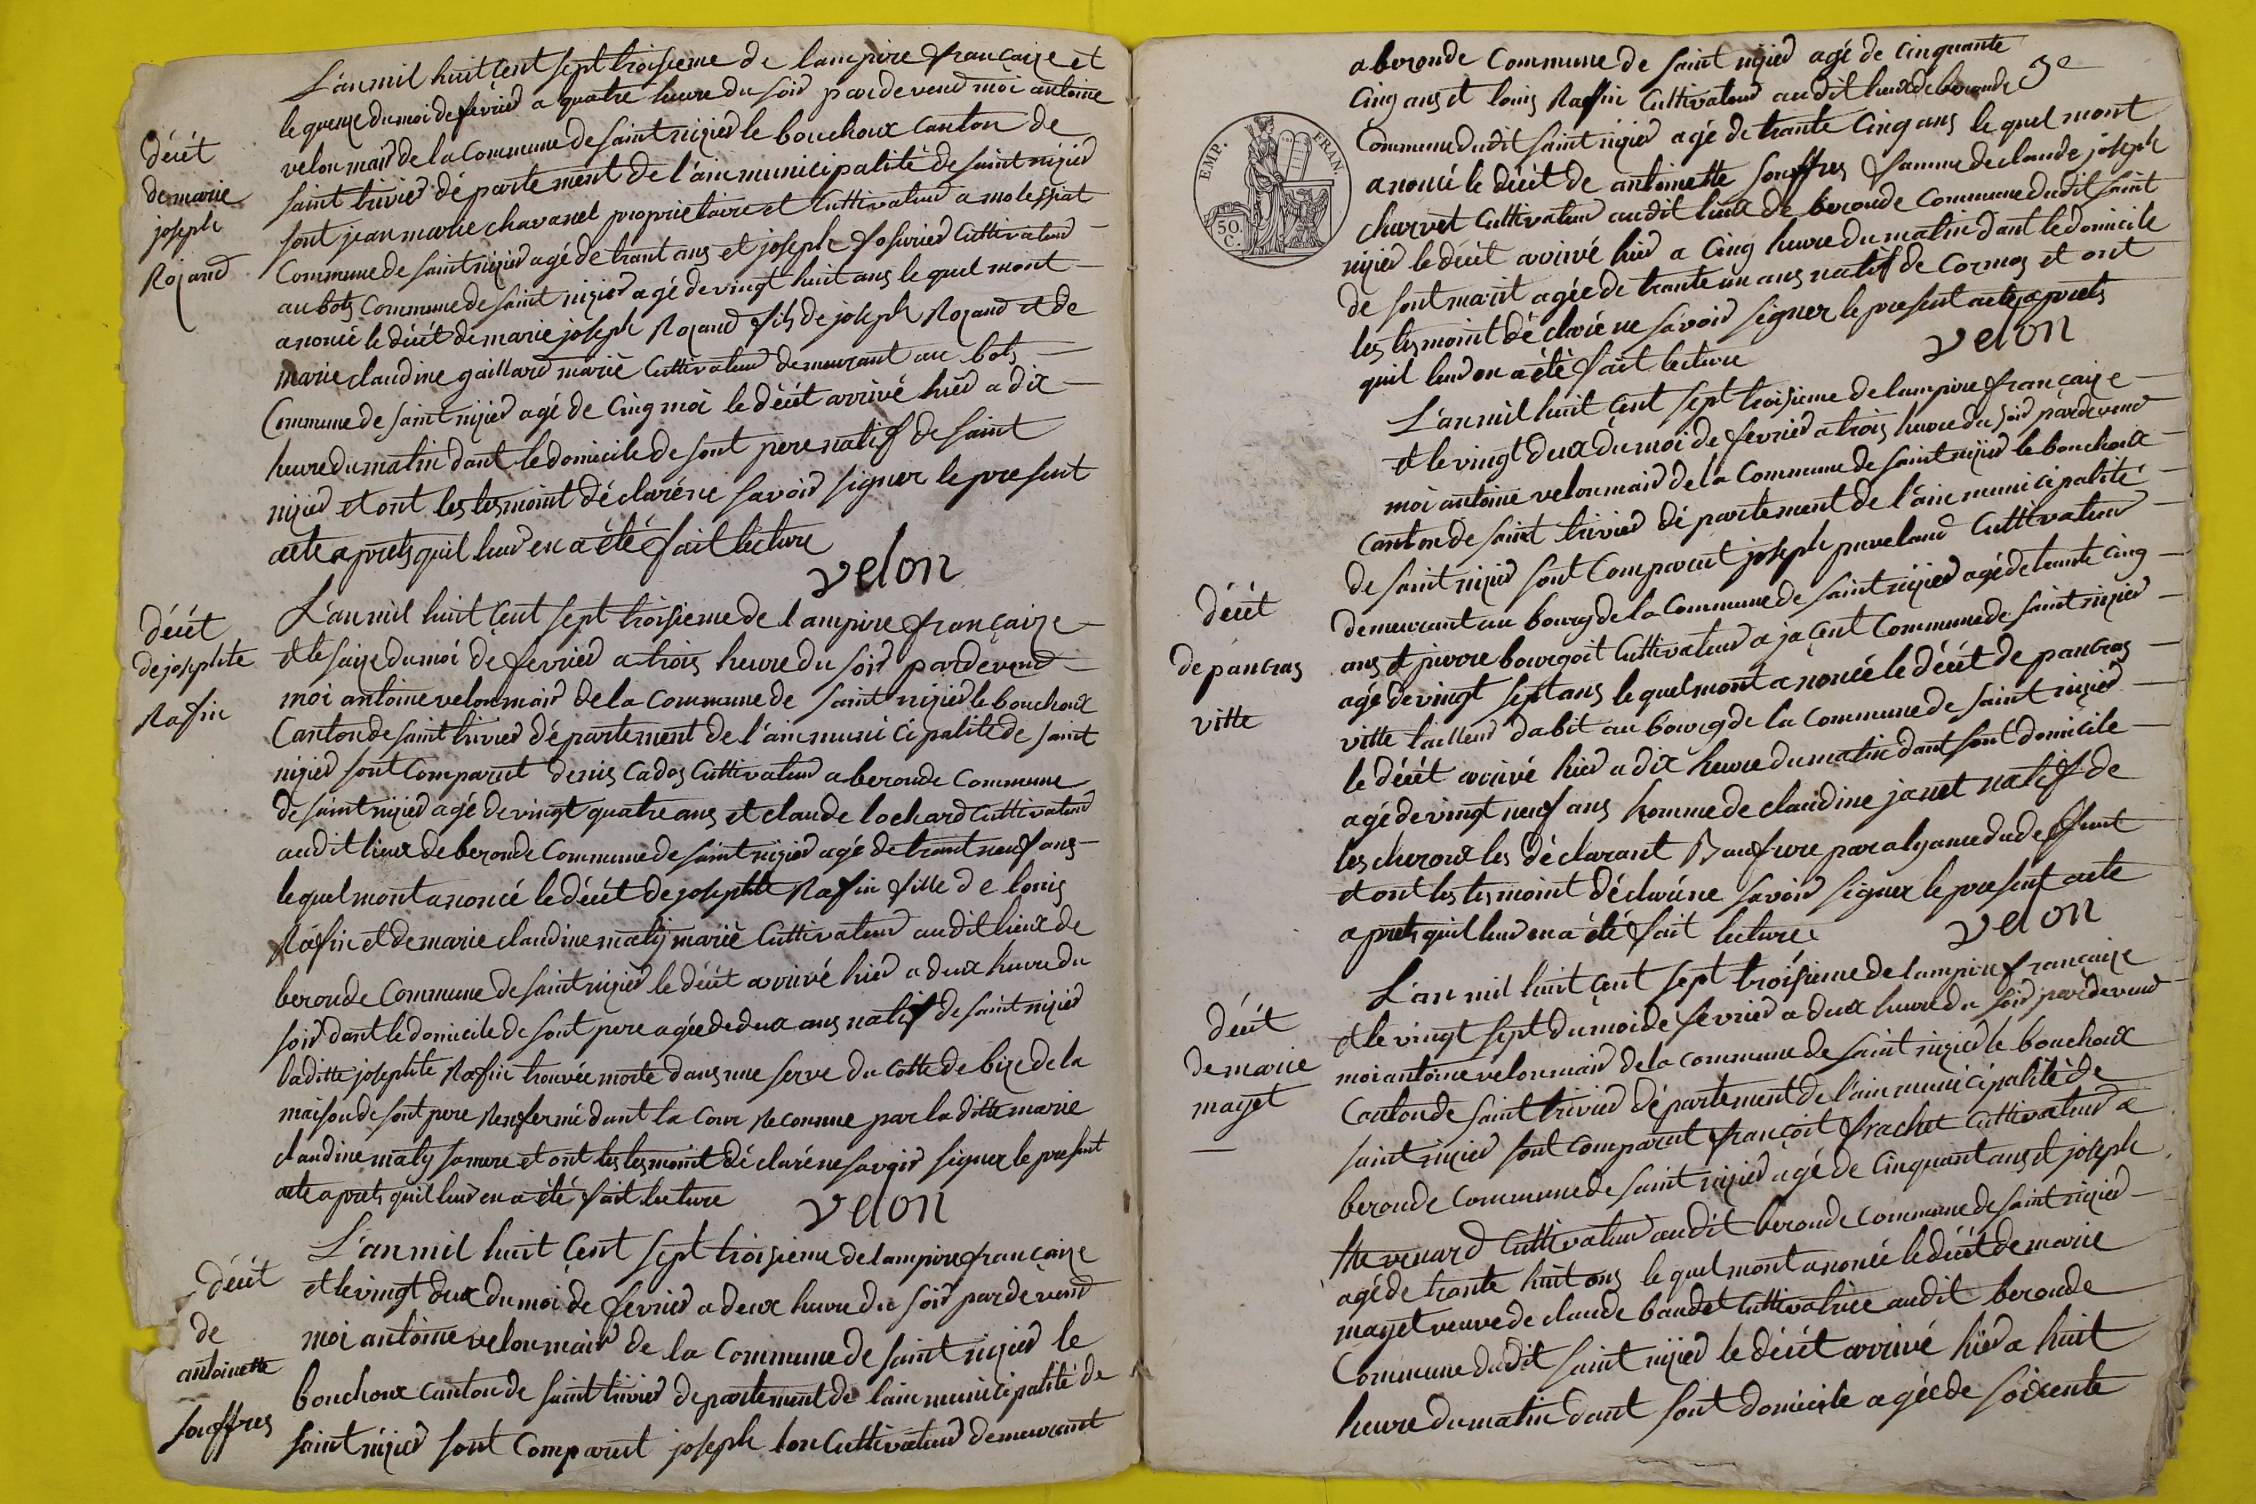 L'an mil huit çent sept troisieme de lampire françaize et
le quenze du moi de fevrier a quatre heure du soir pardevend moi antoine
velon mair de la Commune de saint nizier le bouchoux canton de
saint trivier département de l'ain municipalité de saint nizier
sont jean marie chavanel proprietaire et Cultivateur a molessiat
Commune de saint nizier agé de trant ans et joseph Cultivateur
au bots Commune de saint nizier agé de vingt huit ans le quel mont
anoncé le décét de marie joseph Rozand fils de joseph Rozand et de
marie claudine gaillard marié Cultivateur demeurant au bots
Commune de saint nizier agé de Cinq moi le décét arrivé hier a dix
heure du matin dant le domicile de sont pere natif de saint
nizier et ont les tesmoint déclaréne savoir signer le present
acte aprets quil leur en a été fait lecture
velon
décét
de marie
joseph
Rozand
L'an mil huit çent sept troisieme de lampire françaize
et le saize du moi de fevrier a trois heure du soir pardevend
moi antoine velon mair de la Commune de saint nizier le bouchoux
Canton de saint trivier département de l'ain municipalité de saint
nizier sont Comparut denis Cados Cultivateur a beronde Commune
de saint nizier agé de vingt quatre ans et claude lochard Cultivateur
audit lieux de beronde Commune de saint nizier agé de trant neuf ans
le quel mont anoncé le décét de josephte Rafin fille de louis
Rafin et de marie claudine maly marié Cultivateur audit lieux de
beronde Commune de saint nizier le décét arrivé hier a deux heure du
soir dant le domicile de sont pere agée de deux ans natif de saint nizier
laditte josephte Rafin trouvée morte dans une serve du Cotté de bize de la
maison de sont pere Renfermé dant la Cour Reconnue par la ditte marie
claudine maly sa mere et ont les tesmoint déclaréne savoir signer le present
acte aprets quil leur en a été fait lecture
velon
décét
de josephte
Rafin
L'an mil huit Çent sept troisieme de lampire françaize
et le vingt deux du moi de fevrier a deux heure du soir pardevend
moi antoine velon mair de la Commune de saint nizier le
bouchoux canton de saint trivier departement de lain municipalité de
saint nizier sont Comparut joseph Cultivateur demeurant
décét
de
antoinette
souffres
a beronde Commune de saint nizier agé de Cinquante
Cinq ans et louis Rafin Cultivateur audit lieux de beronde
Commune dudit saint nizier agé de trante Cinq ans le quel mont
anoncé le décét de antoinette souffres famme de claude joseph
charvet Cultivateur audit lieux de beronde Commune dudit saint
nizier le décét arrivé hier a Cinq heure du matin dant le domicile
de sont marit agée de trante un ans natif de Cormos et ont
les tesmoint déclaréne savoir signer le present acte aprets
quil leur en a été fait lecture
velon
3e
EMP. FRAN.
50. C.
L'an mil huit çent sept troisieme de lampire françaize
et le vingt deux du moi de fevrier a trois heure du soir pardevend
moi antoine velon mair de la Commune de saint nizier le bouchoux
canton de saint trivier département de l'ain municipalité
de saint nizier sont Comparut joseph puveland Cultivateur
demeurant au bourg de la Commune de saint nizier agé de trante Cinq
ans et pierre bourgoit Cultivateur a jaçent Commune de saint nizier
agé de vingt sept ans le quel mont anoncé le décét de pancras
ville tailleur dabit au bourg de la Commune de saint nizier
le décét arrivé hier a dix heure du matin dant sont domicile
agé de vingt neuf ans homme de claudine janet natif de
les cheroux les déclarant Baufrere par alyance du deffunt
et ont les tesmoint déclaréne savoir signer le present acte
aprets quil leur en a été fait lecture
velon
décét
de pancras
ville
L'an mil huit çent sept troisieme de lampire françaize
et le vingt sept du moi de fevrier a deux heure du soir pardevend
moi antoine velon mair de la commune de saint nizier le bouchoux
Canton de saint trivier département de l'ain municipalité de
saint nizier sont Comparut françoit frachet Cultivateur a
beronde Commune de saint nizier agé de Cinquant ans et joseph
thevenard Cultivateur audit beronde Commune de saint nizier
agé de trante huit ans le quel mont anoncé le décét de marie
mayet veuve de claude baudet Cultivatrice audit beronde
Commune dudit saint nizier le décét arrivé hier a huit
heure du matin dant sont domicile agée de soixente
décét
de marie
mayet